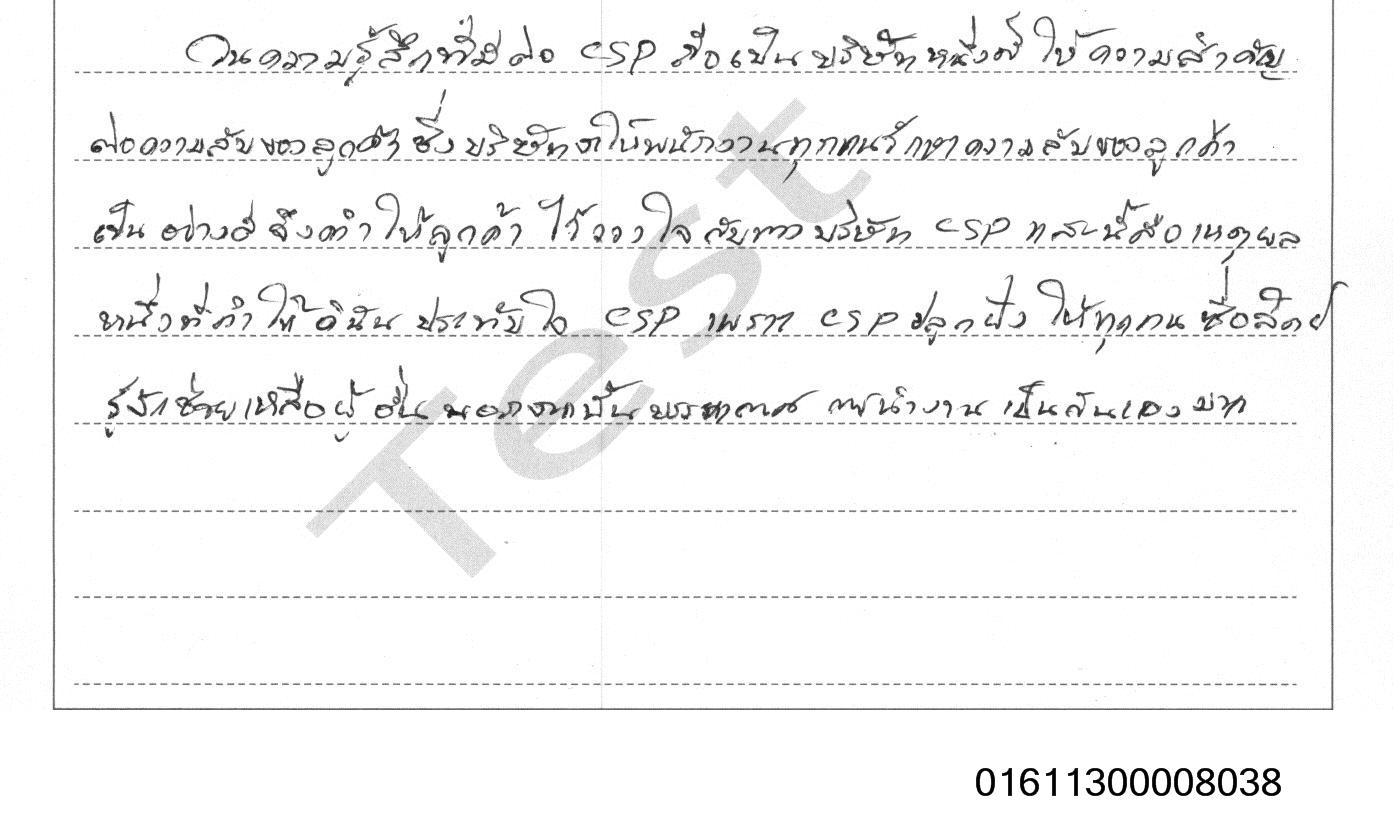 ในความรู้สึกที่มีต่อ CSP คือเป็นบริษัทหนึ่งที่ให้ความสำคัญ
ต่อความลับของลูกค้า ซึ่งบริษัททำให้พนักงานทุกคนรักษาความลับของลูกค้า
เป็นอย่างดี จึงทำให้ลูกค้าไว้วางใจกับทางบริษัท CSP และนี้คือเหตุผล
หนึ่งที่ทำให้ดิฉันประทับใจ CSP เพราะ CSP ปลูกฝังให้ทุกคนซื่อสัตย์
รู้จักช่วยเหลือผู้อื่น นอกจากนั้นบรรยากาศ การทำงานเป็นกันเองมาก
Test
01611300008038